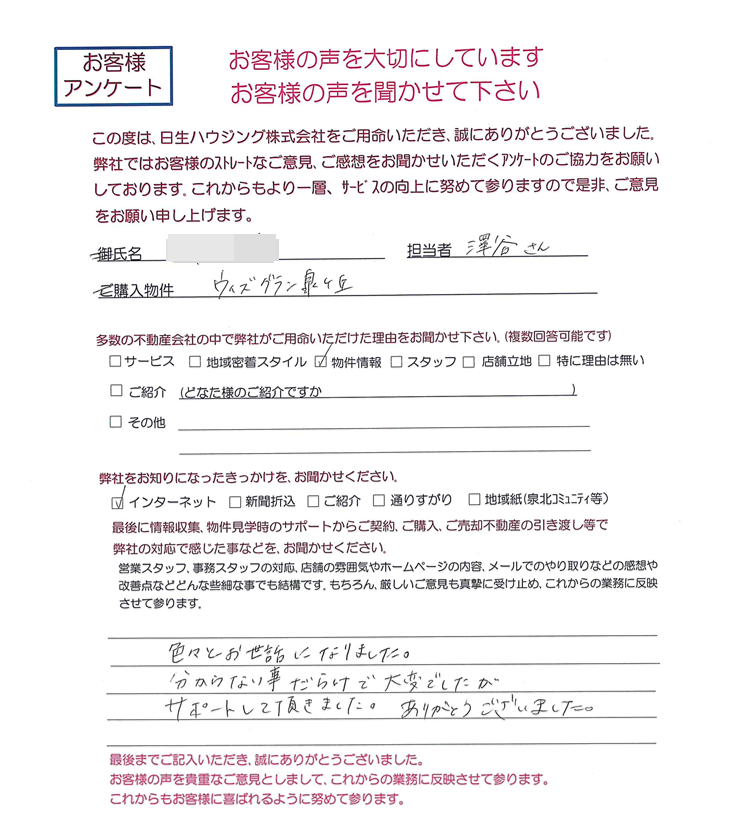 お客様
アンケート
お客様の声を大切にしています
お客様の声を聞かせて下さい
この度は、日生ハウジング株式会社をご用命いただき、誠にありがとうございました。
弊社ではお客様のｽﾄﾚｰﾄなご意見、ご感想をお聞かせいただくｱﾝｹｰﾄのご協力をお願い
しております。これからもより一層、ｻｰﾋﾞｽの向上に努めて参りますので是非、ご意見
をお願い申し上げます。
御氏名 担当者 澤谷さん
ご購入物件 ウィズグラン泉ヶ丘
多数の不動産会社の中で弊社がご用命いただけた理由をお聞かせ下さい。(複数回答可能です)
□サービス □地域密着スタイル ☑物件情報 □スタッフ □店舗立地 □特に理由は無い
□ご紹介 (どなた様のご紹介ですか )
□その他
弊社をお知りになったきっかけを、お聞かせください。
☑インターネット □新聞折込 □ご紹介 □通りすがり □地域紙(泉北ｺﾐｭﾆﾃｨ等)
最後に情報収集、物件見学時のサポートからご契約、ご購入、ご売却不動産の引き渡し等で
弊社の対応で感じた事などを、お聞かせください。
営業スタッフ、事務スタッフの対応、店舗の雰囲気やホームページの内容、メールでのやり取りなどの感想や
改善点などどんな些細な事でも結構です。もちろん、厳しいご意見も真摯に受け止め、これからの業務に反映
させて参ります。
色々とお世話になりました。
分からない事だらけで大変でしたが
サポートして頂きました。ありがとうございました。
最後までご記入いただき、誠にありがとうございました。
お客様の声を貴重なご意見としまして、これからの業務に反映させて参ります。
これからもお客様に喜ばれるように努めて参ります。